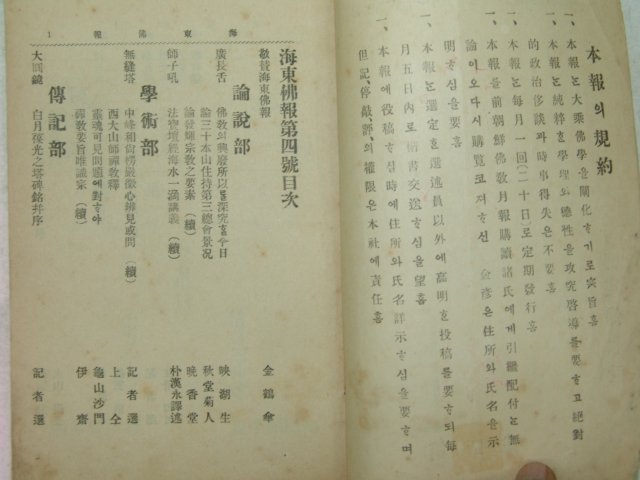 本報의規約
一、本報는大乘佛學을闡化하기로宗旨홈
一、本報는純粹한學理와德性을攻究啓導를要하고絶對
的政治侈談과時事得失은不要홈
一、本報는每月一回(二十日)로定期發行홈
一、本報를前朝鮮佛敎月報購讀諸氏에게引繼配付는無
論이오다시購覽코져하신 僉彦은住所와氏名을示
明하심을要홈
一、本報는選定한選述員以外에高明한投稿를要하되每
月五日內로楷書交送하심을望홈
一、本報에投稿하실時에住所와氏名詳示하심을要하며
但記、停、敲、評、의權限은本社에責任홈
海東佛報 1
海東佛報第四號目次
敬賛海東佛報 金鶴傘
論說部
廣長舌 佛敎의興廢所以를探究할今日 映湖生
論三十本山住持第三總會景況 秋堂菊人
論發輝宗敎之要素 晩香堂
師子吼 法寶壇經海水一滴講義(續) 朴漢永譯述
學術部
無縫塔 中峰和尙楞嚴徵心辨見或問(續) 記者選
西大山師禪敎釋 上仝
靈魂可見問題에對하야 龜山沙門
禪敎要旨唯識宗(續) 伊齋
傳記部
大圓鏡 白月葆光之塔碑銘幷序 記者選